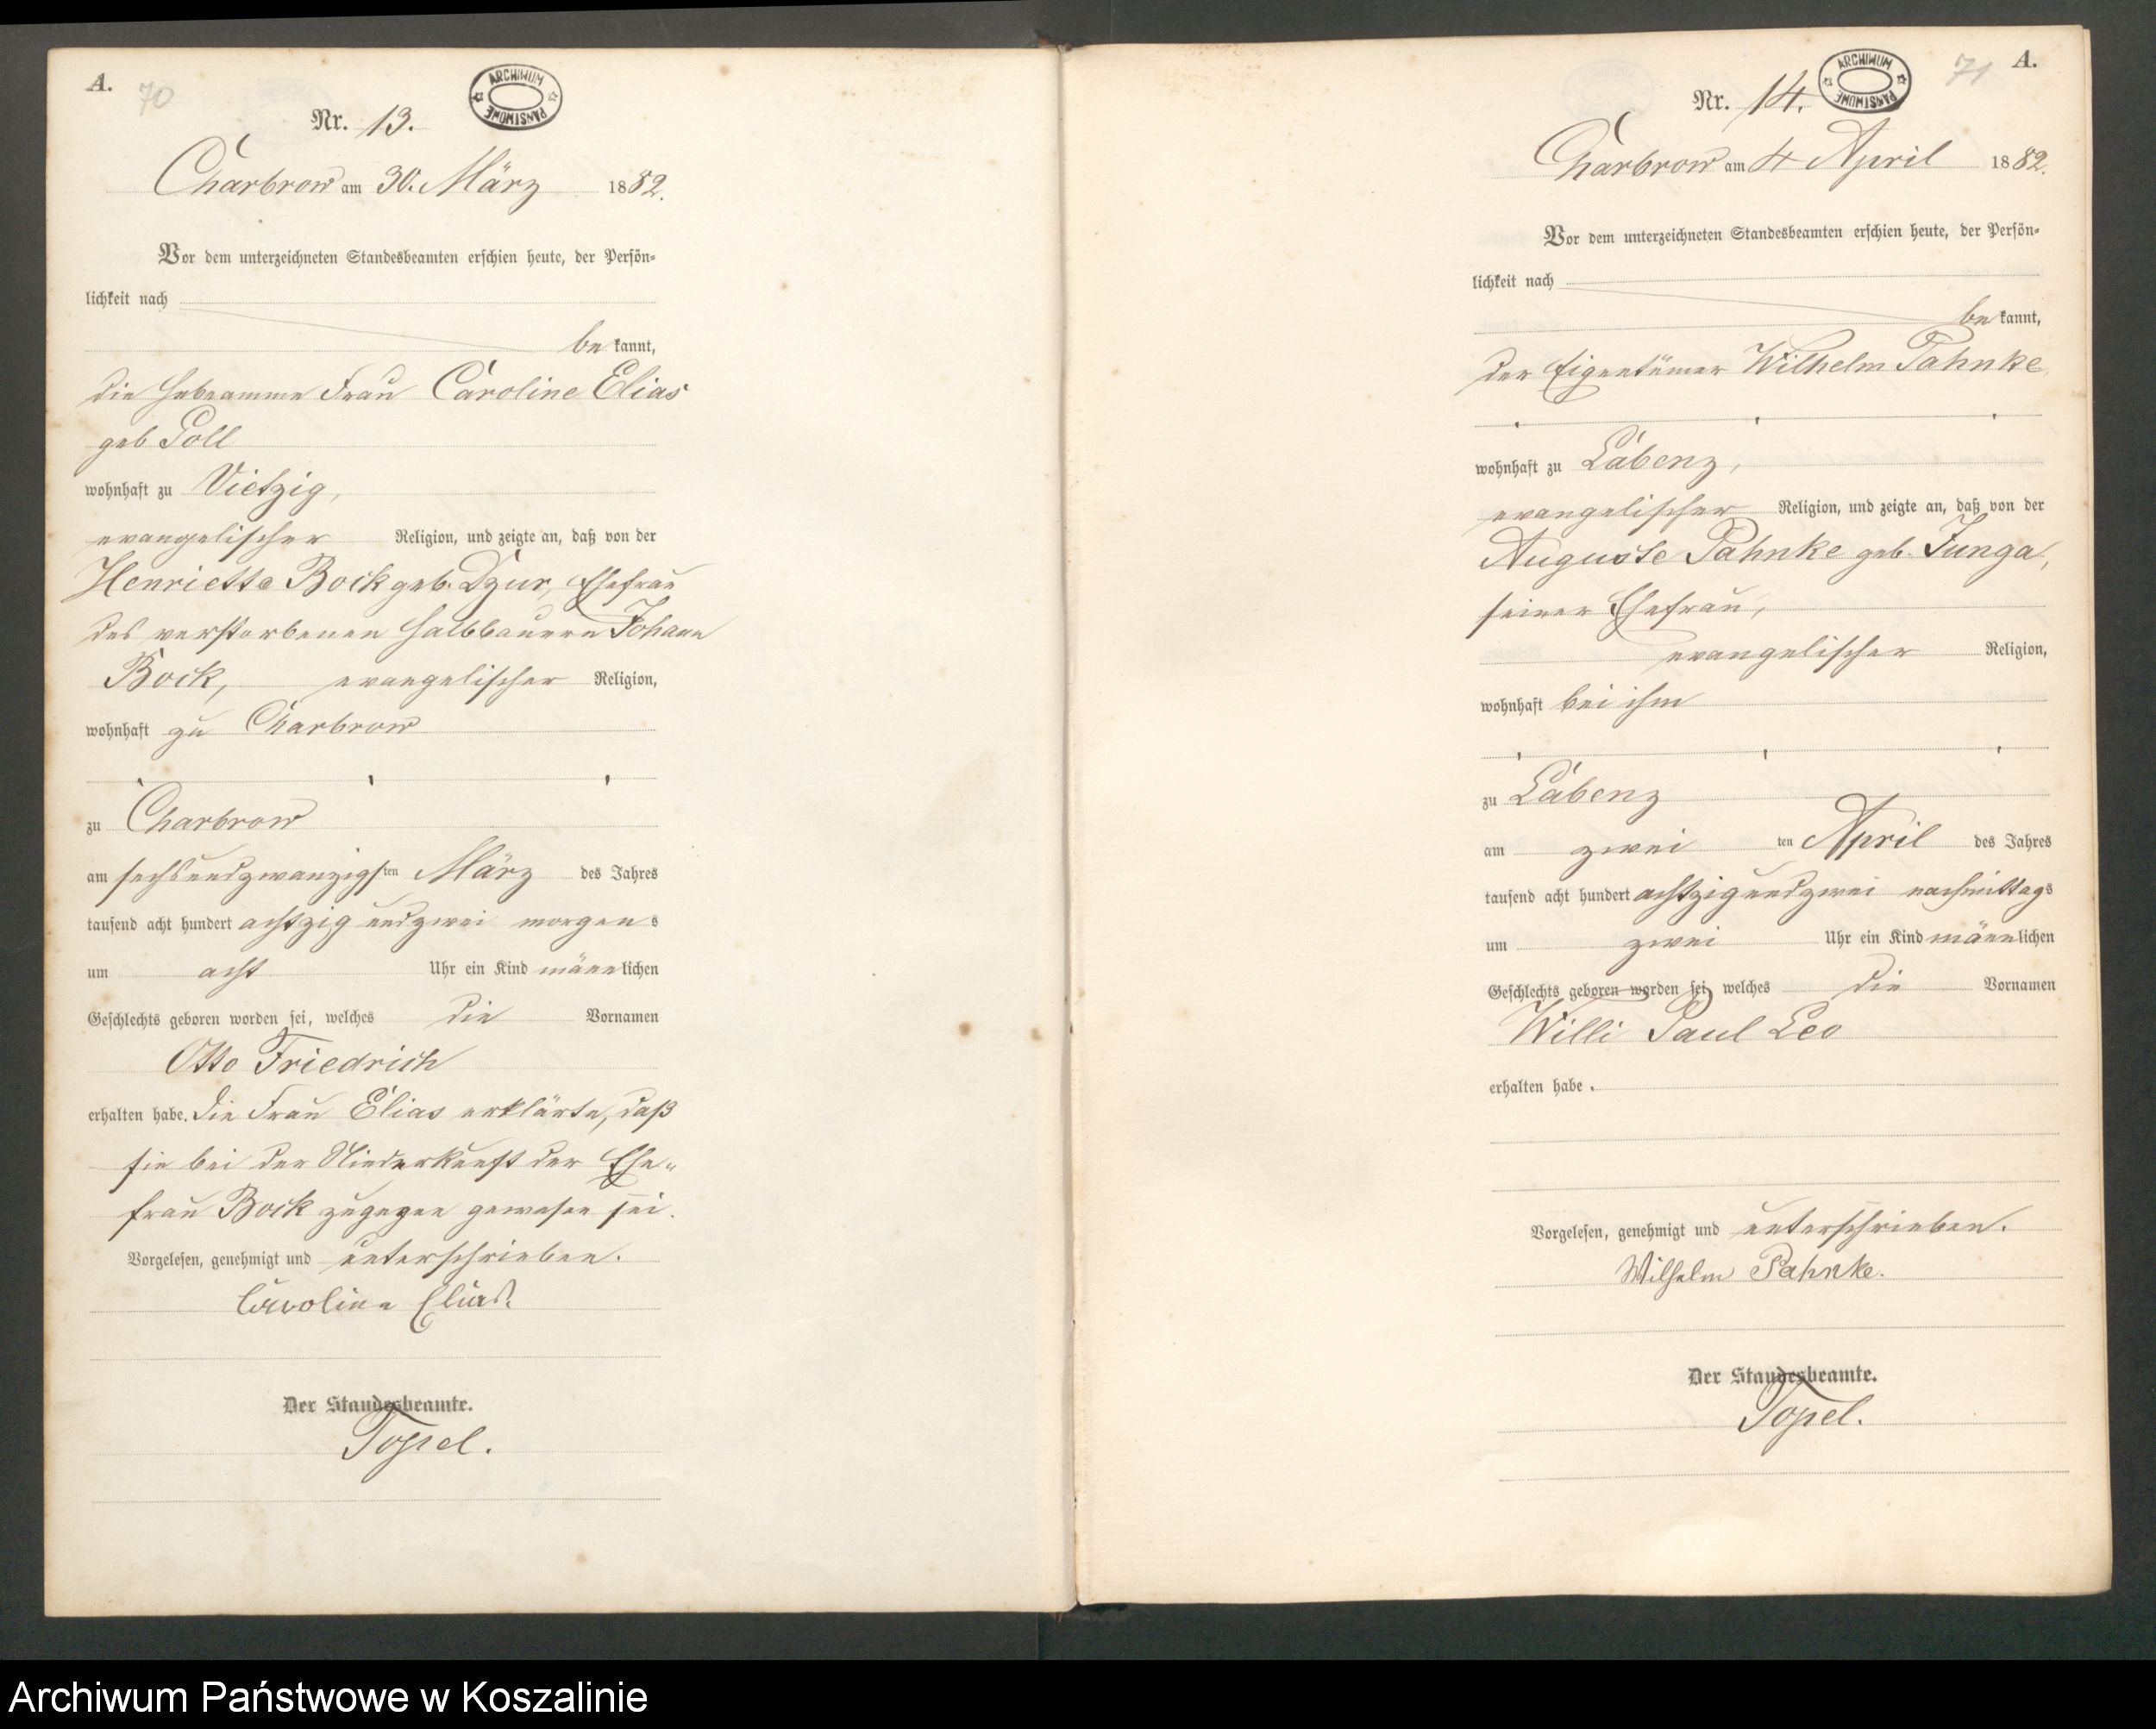 A.
70
ARCHIWUM PAŃSTWOWE
Nr. 13.
Charbrow am 30. März 1882.
Vor dem unterzeichneten Standesbeamten erschien heute, der Persön-
lichkeit nach
be kannt,
die Hebeamme Frau Caroline Elias
geb Goll
wohnhaft zu Vietzig,
evangelischer Religion, und zeigte an, daß von der
Henriette Bock geb. Dzur, Ehefrau
des verstorbenen Halbbauern Johann
Bock, evangelischer Religion,
wohnhaft zu Charbrow
zu Charbrow
am sechsundzwanzigsten März des Jahres
tausend acht hundert achtzig und zwei morgens
um acht Uhr ein Kind männlichen
Geschlechts geboren worden sei, welches die Vornamen
Otto Friedrich
erhalten habe. Die Frau Elias erklärte, daß
sie bei der Niederkunft der Ehe-
frau Bock zugegen gewesen sei.
Vorgelesen, genehmigt und unterschrieben.
Caroline Elias.
Der Standesbeamte.
Topel.
71
A.
ARCHIWUM PAŃSTWOWE
Nr. 14.
Charbrow am 4 April 1882.
Vor dem unterzeichneten Standesbeamten erschien heute, der Persön-
lichkeit nach
be kannt,
der Eigentümer Wilhelm Pahnke
wohnhaft zu Labenz,
evangelischer Religion, und zeigte an, daß von der
Auguste Pahnke geb. Junga,
seiner Ehefrau,
evangelischer Religion,
wohnhaft bei ihm
zu Labenz
am zwei ten April des Jahres
tausend acht hundert achtzig und zwei nachmittags
um zwei Uhr ein Kind männlichen
Geschlechts geboren worden sei, welches die Vornamen
Willi Paul Leo
erhalten habe.
Vorgelesen, genehmigt und unterschrieben.
Wilhelm Pahnke.
Der Standesbeamte.
Topel.
Archiwum Państwowe w Koszalinie